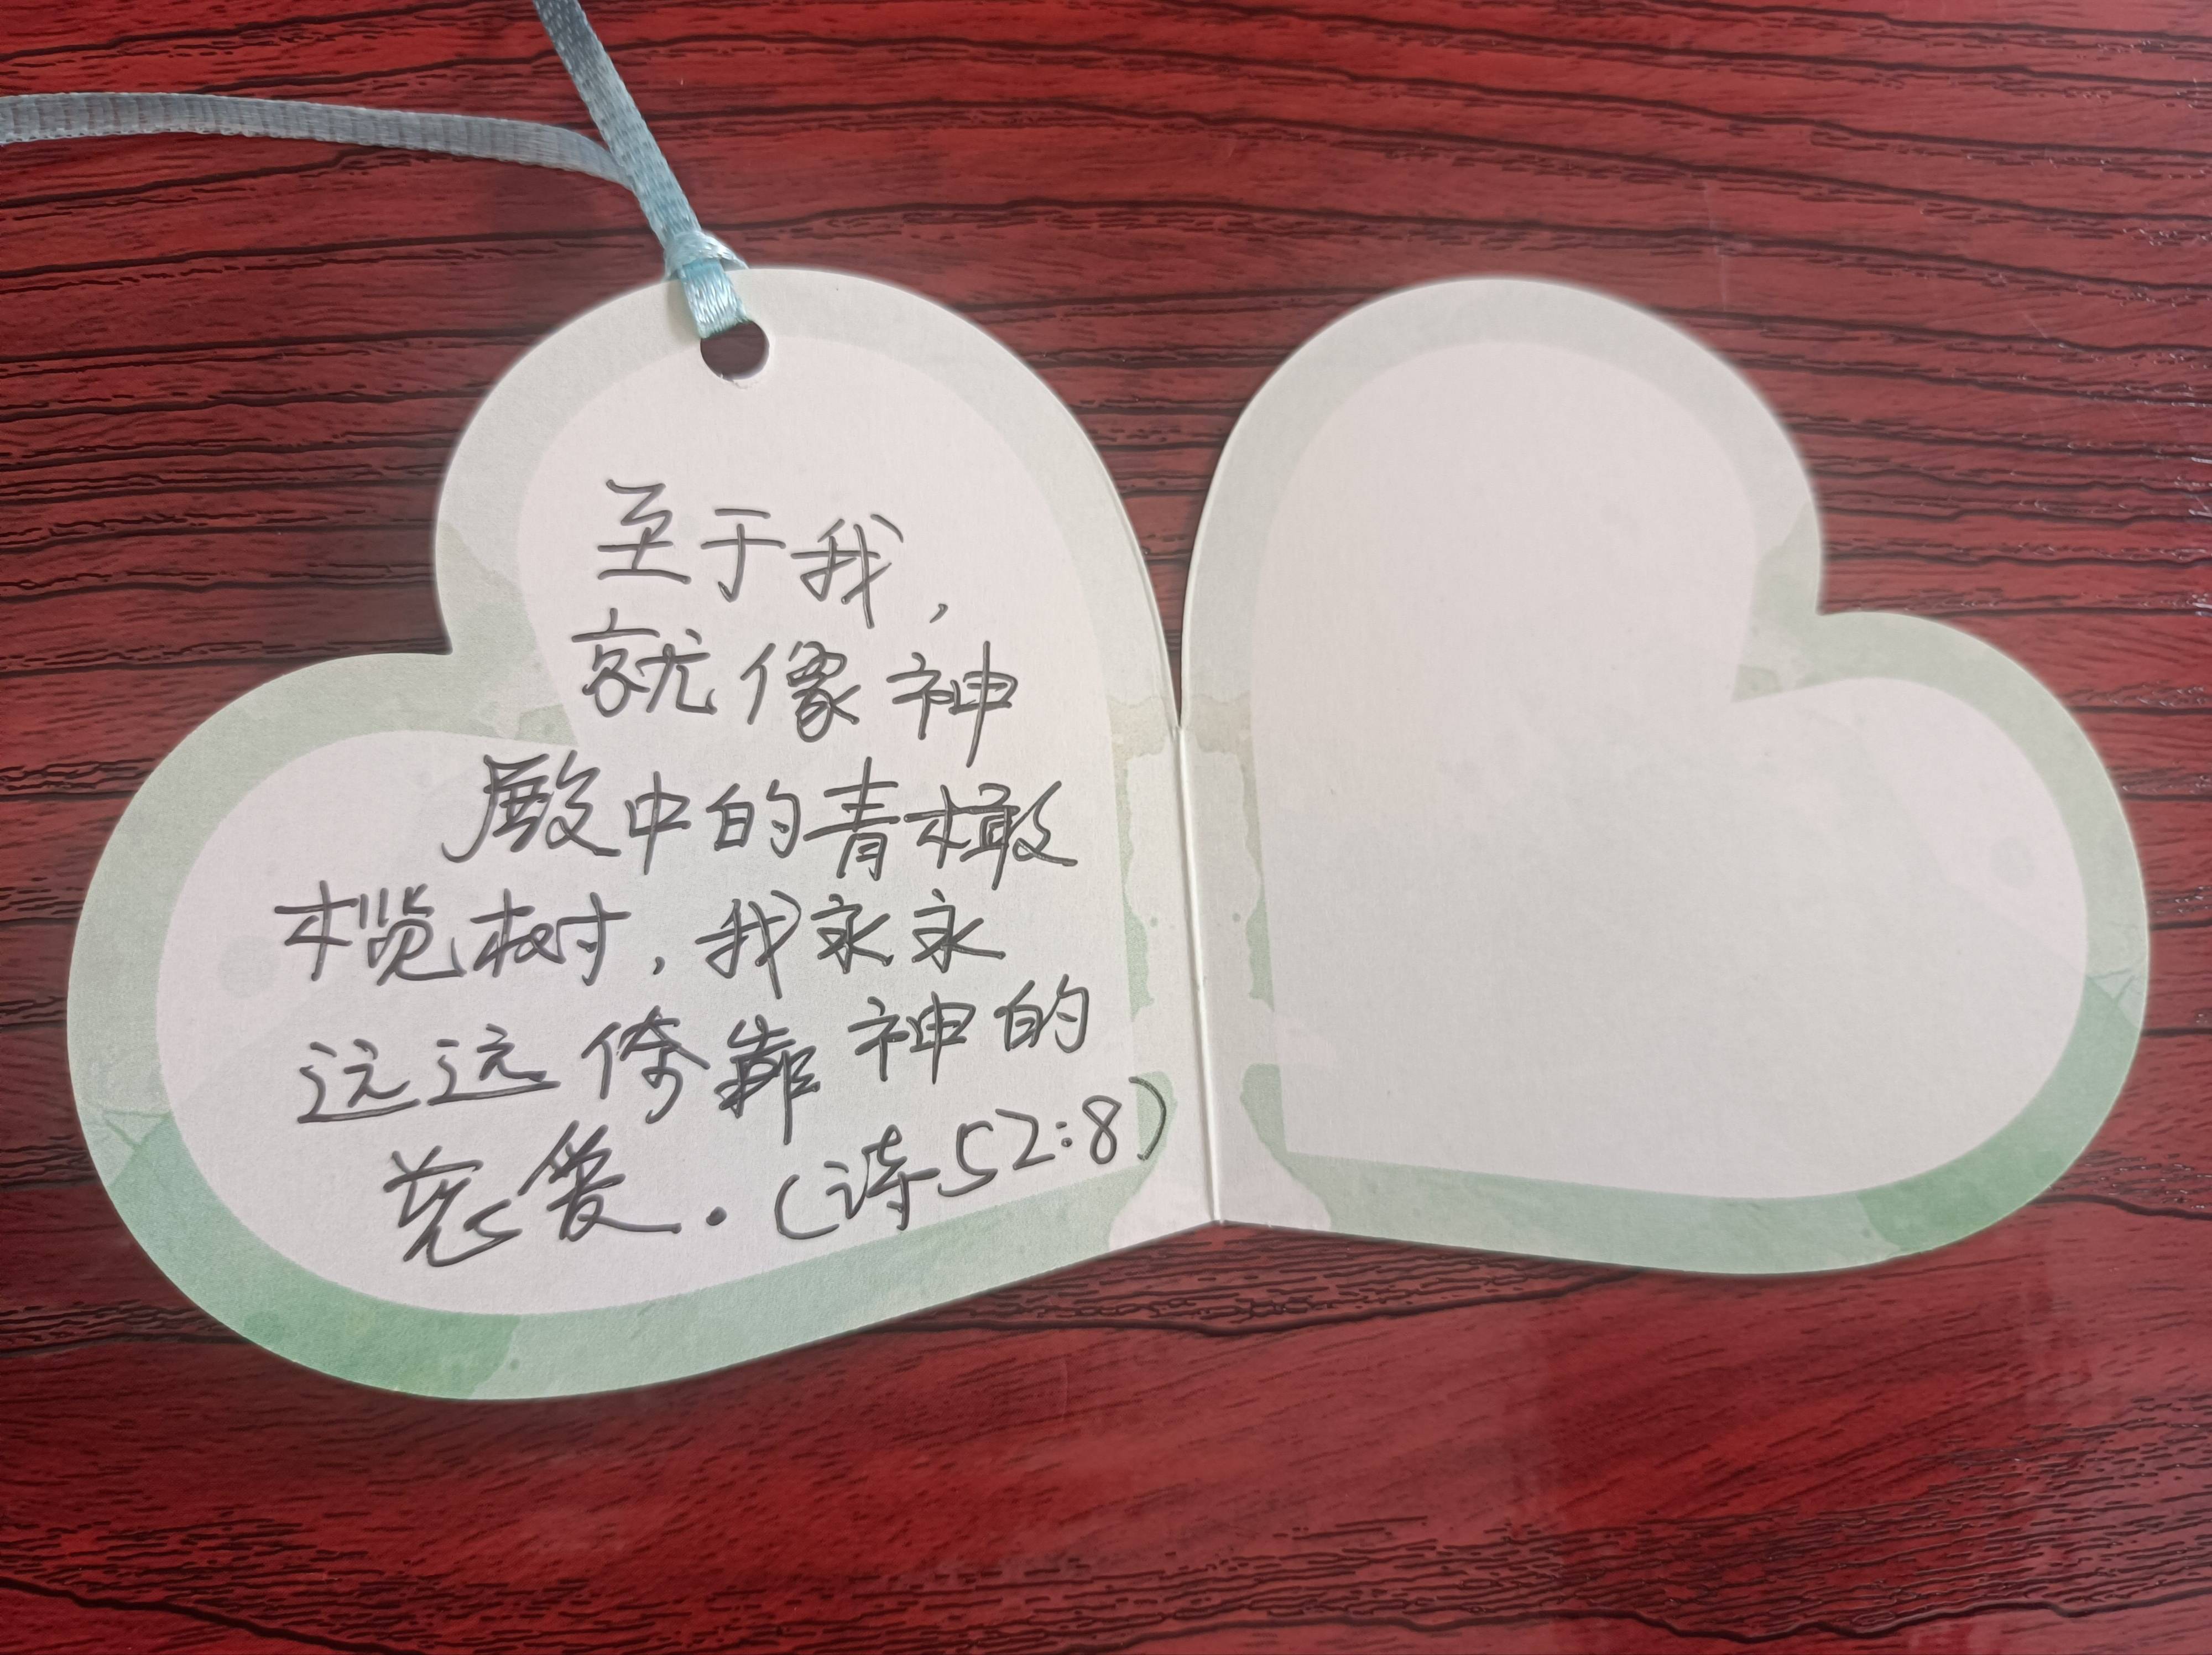 至于我,
就像神
殿中的青橄
榄树,我永永
远远倚靠神的
慈爱.(诗52:8)